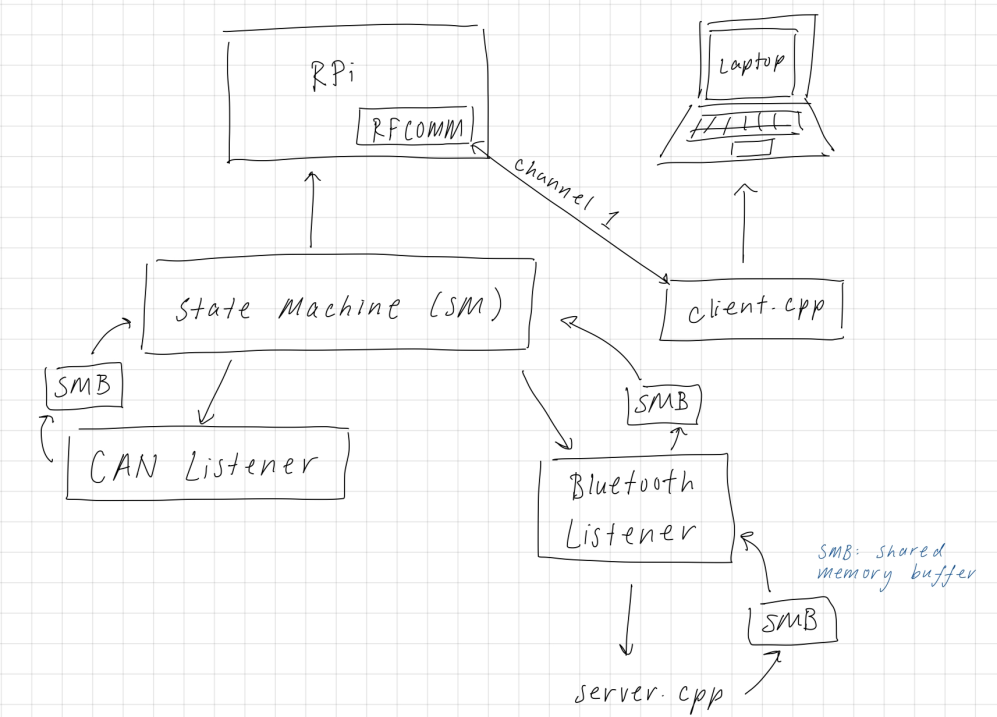 RPi
Laptop
RFCOMM
channel 1
State Machine (SM)
client.cpp
SMB
SMB
CAN Listener
Bluetooth
Listener
SMB: shared
memory buffer
SMB
server.cpp